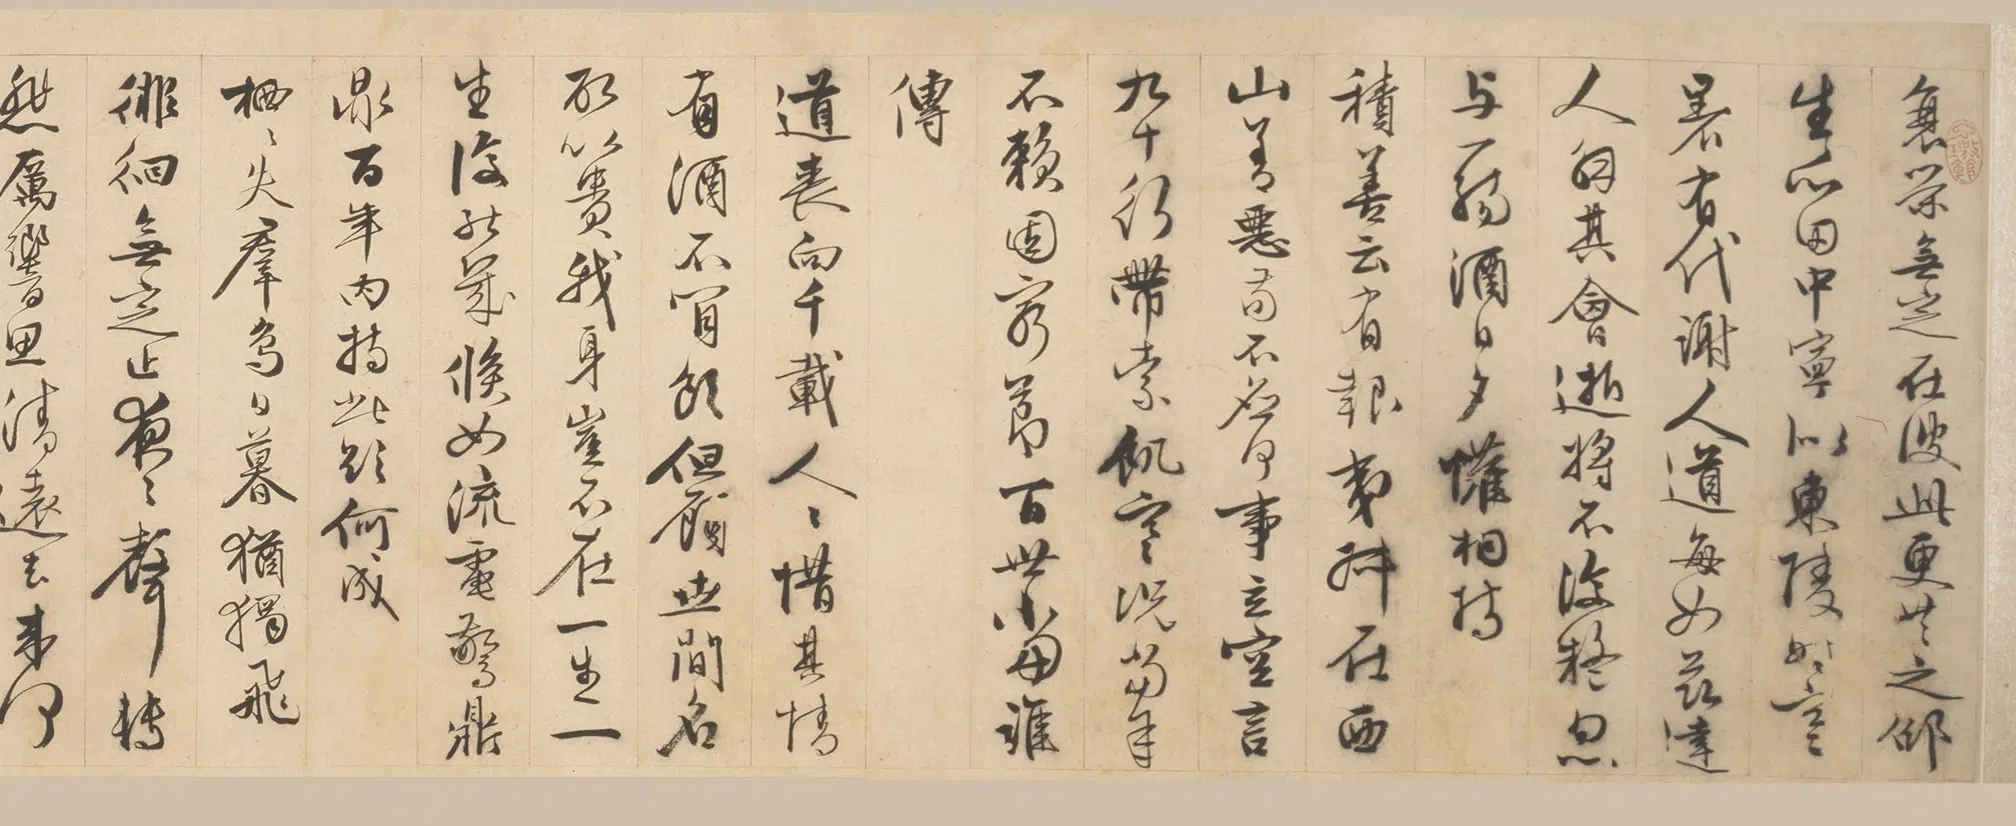 衰榮無定在彼此更共之邵
生瓜田中寧似東陵時寒
暑有代謝人道每如茲達
人解其會逝將不復疑忽
与一觴酒日夕懽相持
積善云有報夷叔在西
山善惡苟不應何事立空言
九十行帶索飢寒況當年
不賴固窮節百世當誰
傳
道喪向千載人々惜其情
有酒不肯飲但顧世間名
所以貴我身豈不在一生一
生復能幾倏如流電驚鼎
鼎百年內持此欲何成
栖々失羣鳥日暮猶獨飛
徘徊無定止夜々聲轉
悲厲響思清遠去來何